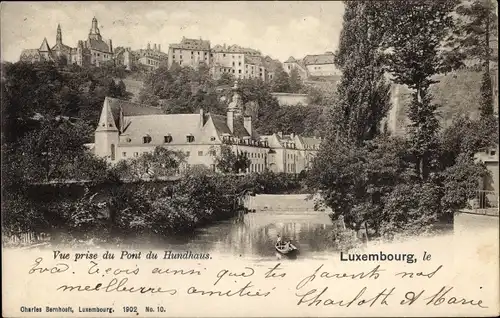 Vue prise du Pont du Hundhaus.
Luxembourg, le
Reçois ainsi que tes parents nos
meilleures amitiés Charloth & Marie
Charles Bernhoeft, Luxembourg. 1902 No. 10.